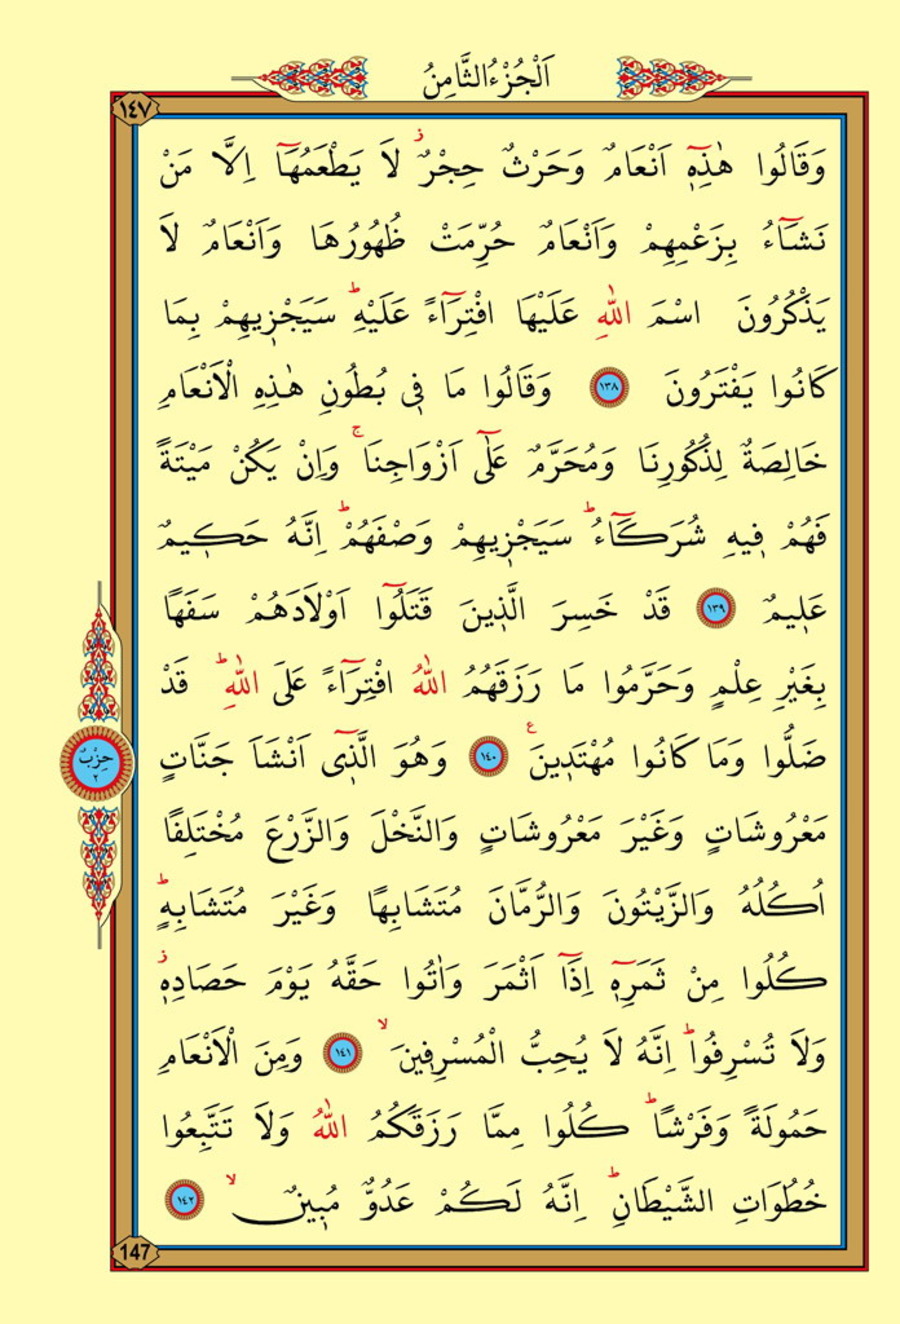 اَلْجُزْءُ الثَّامِنُ
١٤٧
وَقَالُوا هٰذِهٖٓ اَنْعَامٌ وَحَرْثٌ حِجْرٌۘ لَا يَطْعَمُهَآ اِلَّا مَنْ
نَشَٓاءُ بِزَعْمِهِمْ وَاَنْعَامٌ حُرِّمَتْ ظُهُورُهَا وَاَنْعَامٌ لَا
يَذْكُرُونَ اسْمَ اللّٰهِ عَلَيْهَا افْتِرَٓاءً عَلَيْهِؕ سَيَجْزٖيهِمْ بِمَا
كَانُوا يَفْتَرُونَ ١٣٨ وَقَالُوا مَا فٖي بُطُونِ هٰذِهِ الْاَنْعَامِ
خَالِصَةٌ لِذُكُورِنَا وَمُحَرَّمٌ عَلٰٓى اَزْوَاجِنَاۚ وَاِنْ يَكُنْ مَيْتَةً
فَهُمْ فٖيهِ شُرَكَٓاءُؕ سَيَجْزٖيهِمْ وَصْفَهُمْؕ اِنَّهُ حَكٖيمٌ
عَلٖيمٌ ١٣٩ قَدْ خَسِرَ الَّذٖينَ قَتَلُٓوا اَوْلَادَهُمْ سَفَهًا
بِغَيْرِ عِلْمٍ وَحَرَّمُوا مَا رَزَقَهُمُ اللّٰهُ افْتِرَٓاءً عَلَى اللّٰهِؕ قَدْ
ضَلُّوا وَمَا كَانُوا مُهْتَدٖينَ ع ١٤٠ وَهُوَ الَّذٖٓي اَنْشَاَ جَنَّاتٍ
حِزْبٌ
٢
مَعْرُوشَاتٍ وَغَيْرَ مَعْرُوشَاتٍ وَالنَّخْلَ وَالزَّرْعَ مُخْتَلِفًا
اُكُلُهُ وَالزَّيْتُونَ وَالرُّمَّانَ مُتَشَابِهًا وَغَيْرَ مُتَشَابِهٍؕ
كُلُوا مِنْ ثَمَرِهٖٓ اِذَٓا اَثْمَرَ وَاٰتُوا حَقَّهُ يَوْمَ حَصَادِهٖ ز
وَلَا تُسْرِفُواؕ اِنَّهُ لَا يُحِبُّ الْمُسْرِفٖينَۙ ١٤١ وَمِنَ الْاَنْعَامِ
حَمُولَةً وَفَرْشًاؕ كُلُوا مِمَّا رَزَقَكُمُ اللّٰهُ وَلَا تَتَّبِعُوا
خُطُوَاتِ الشَّيْطَانِؕ اِنَّهُ لَكُمْ عَدُوٌّ مُبٖينٌۙ ١٤٢
147